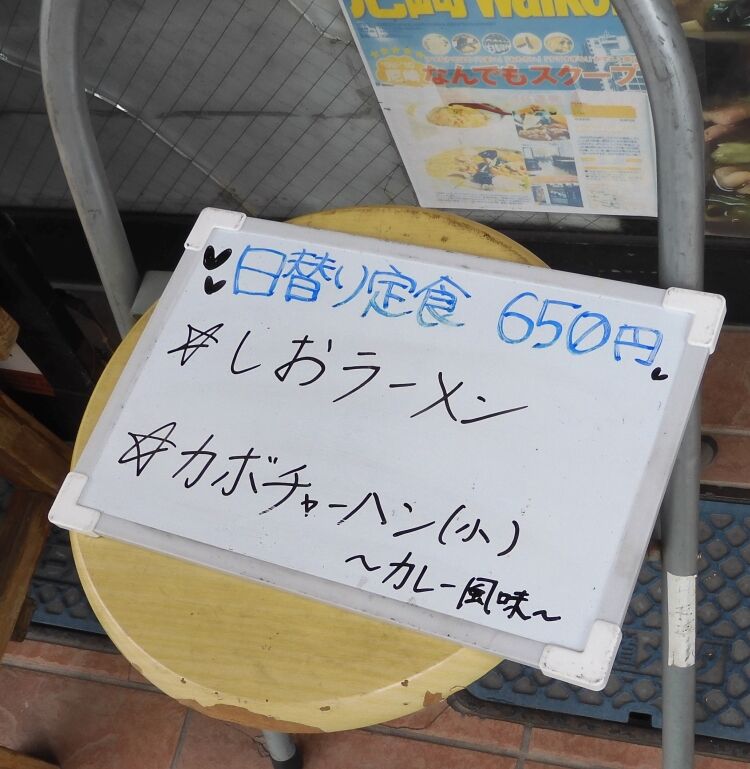 Walker
なんでもスクープ
日替り定食 650円
しおラーメン
カボチャーハン(小)
~カレー風味~